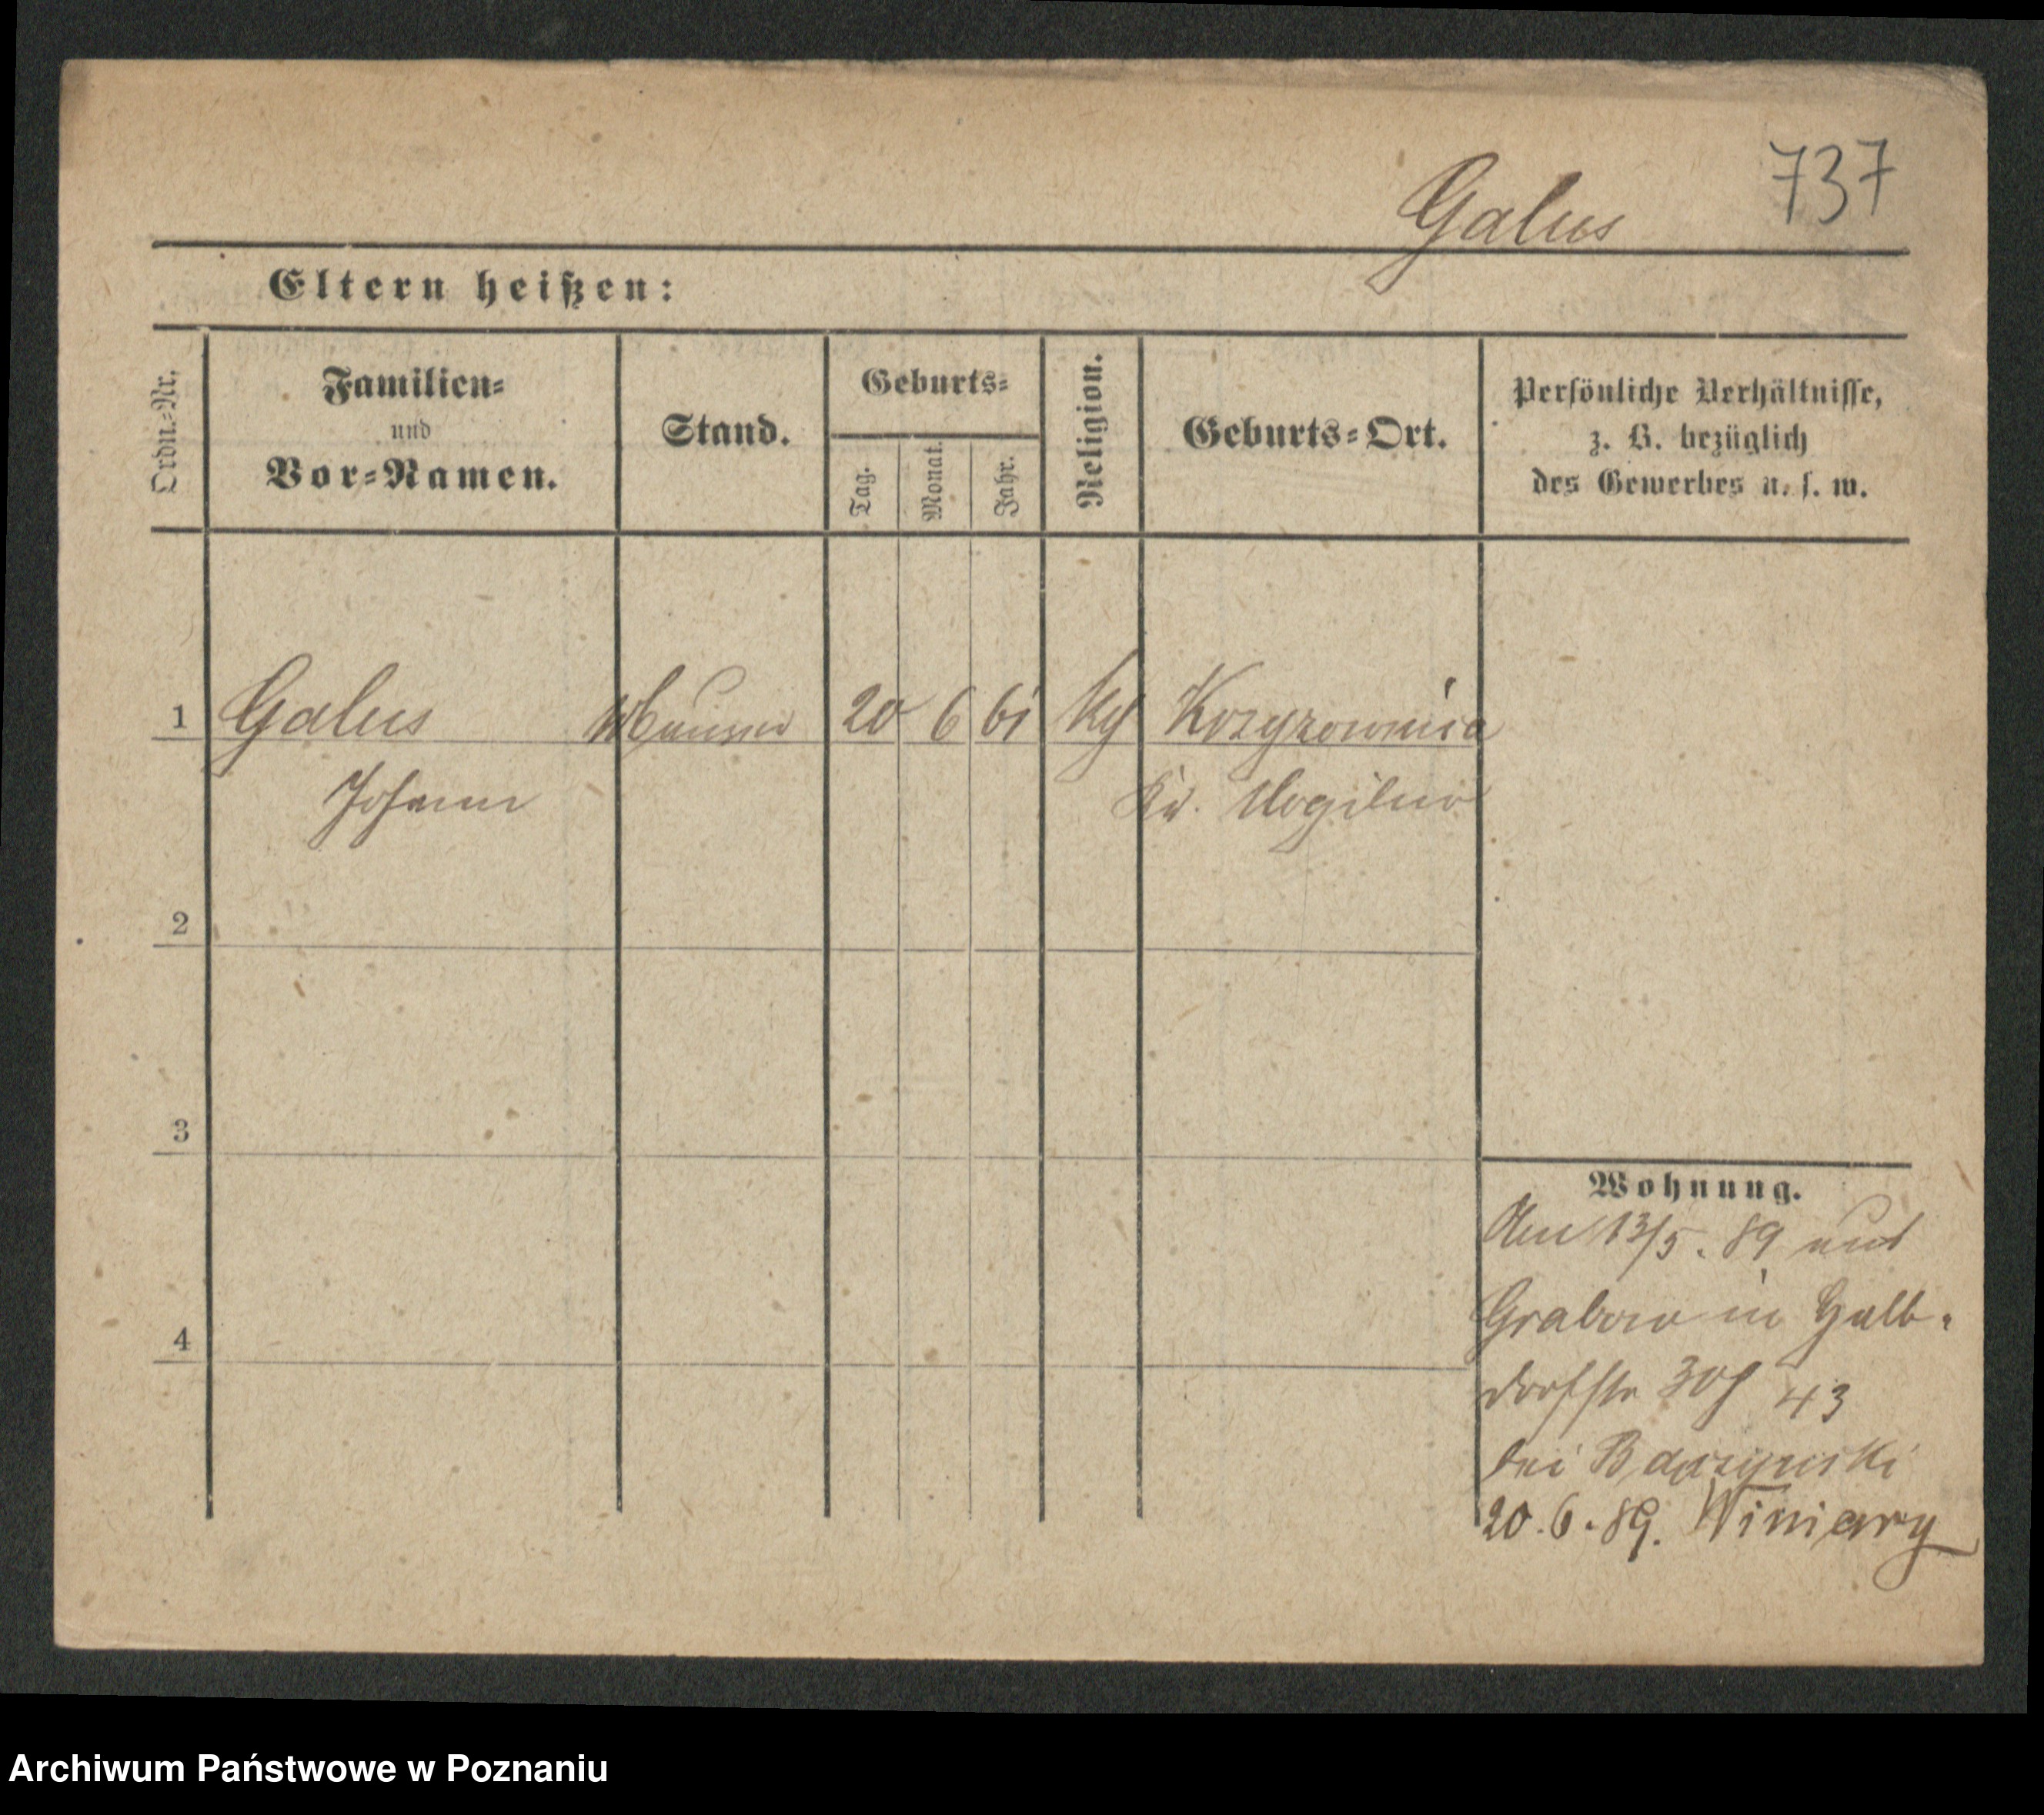 737
Galus
Eltern heißen:
Ordn.-Nr.
Familien-
und
Vor-Namen.
Stand.
Geburts-
Tag.
Monat.
Jahr.
Religion.
Geburts-Ort.
Persönliche Verhältnisse,
z. B. bezüglich
des Gewerbes u. s. w.
1 Galus 20 6 61
Johann Kr. Mogilno
2
3
4
Wohnung.
Am 13/5. 89 aus
Grabow in Halb-
dorfstr 43
bei
20.6.89. Winiary
Archiwum Państwowe w Poznaniu